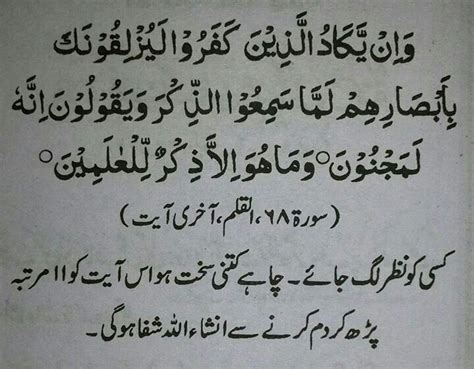 وَاِنْ يَّكَادُ الَّذِيْنَ كَفَرُوْا لَيُزْلِقُوْنَكَ
بِاَبْصَارِهِمْ لَمَّا سَمِعُوا الذِّكْرَ وَيَقُوْلُوْنَ اِنَّهٗ
لَمَجْنُوْنَ○ وَمَا هُوَ اِلَّا ذِكْرٌ لِّلْعٰلَمِيْنَ○
(سورۃ ۶۸، القلم، آخری آیت)
کسی کو نظر لگ جائے۔ چاہے کتنی سخت ہو اس آیت کو ۱۱ مرتبہ
پڑھ کر دم کرنے سے انشاء اللہ شفا ہوگی۔